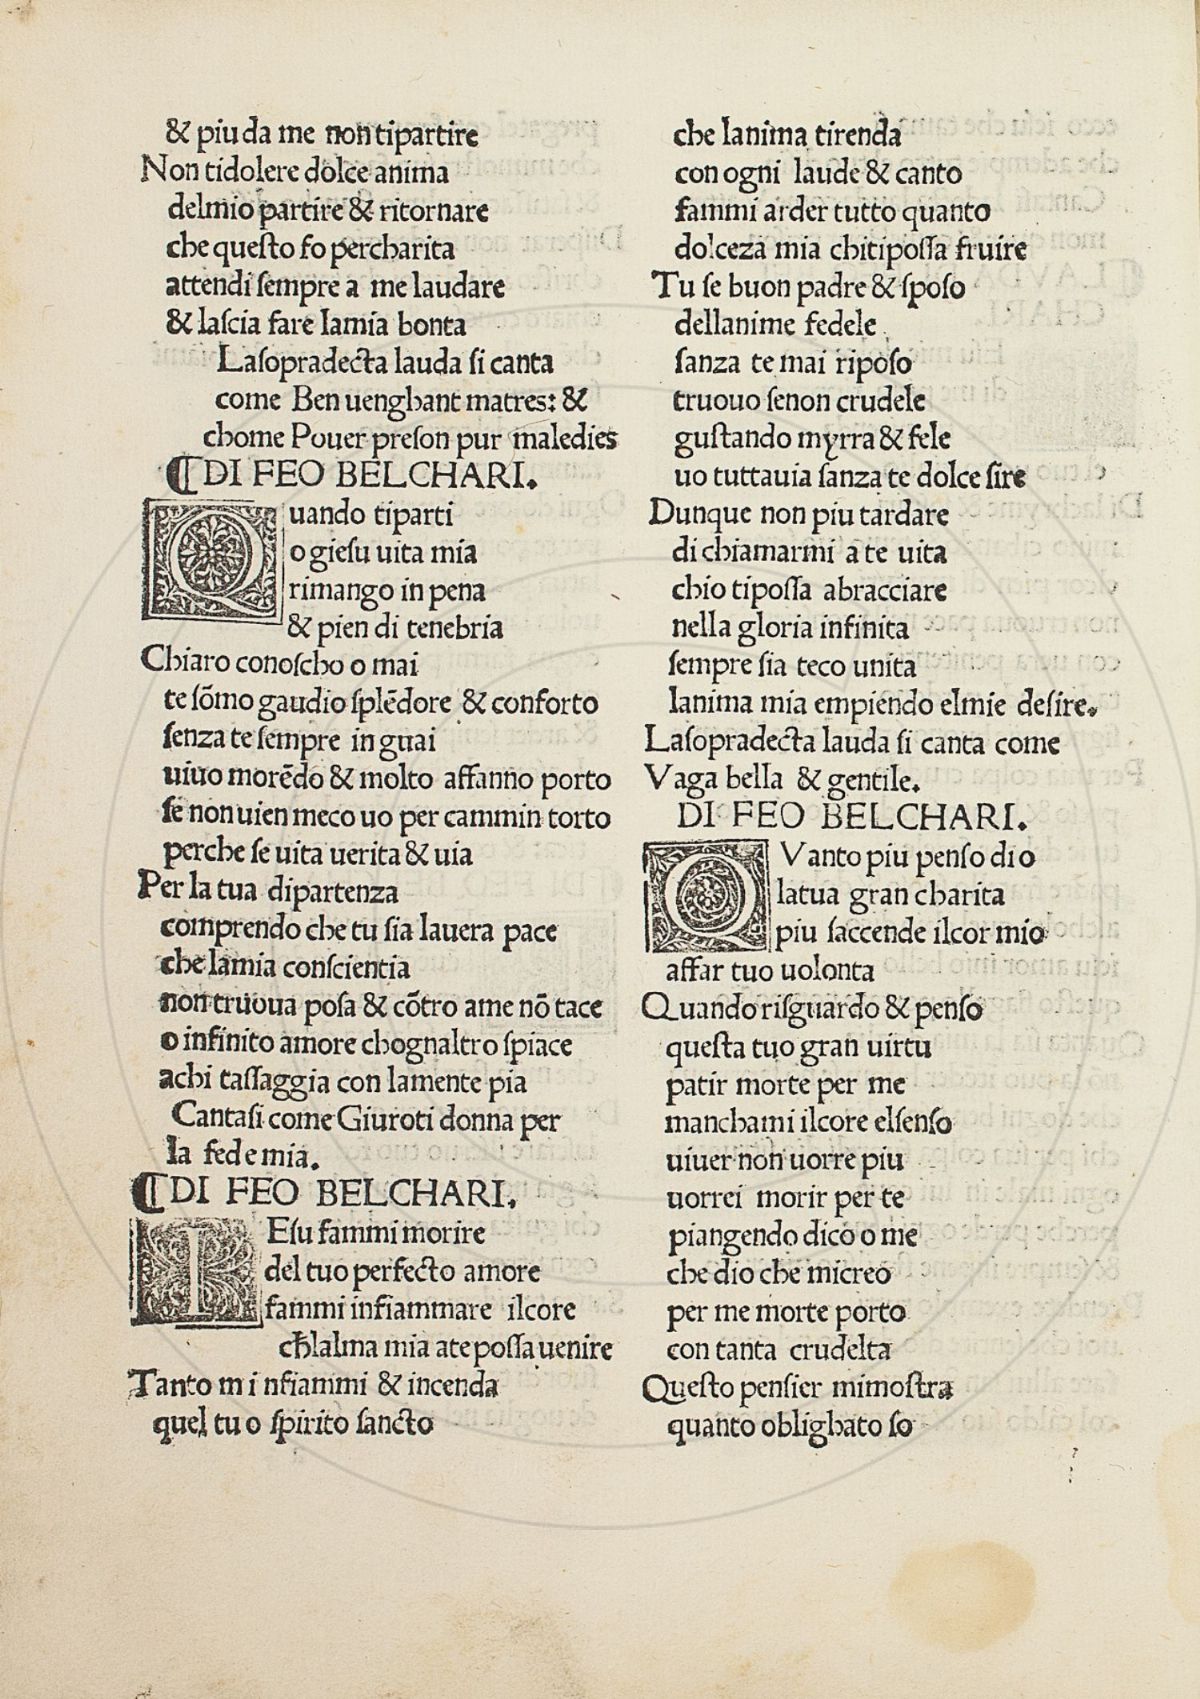 & piu da me non tipartire
Non tidolere dolce anima
delmio partire & ritornare
che questo fo percharita
attendi sempre a me laudare
& lascia fare lamia bonta
Lasopradecta lauda si canta
come Ben uenghant matres: &
chome Pouer preson pur maledies
¶DI FEO BELCHARI.
Quando tiparti
o giesu uita mia
rimango in pena
& pien di tenebria
Chiaro conoscho o mai
te sōmo gaudio splēdore & conforto
senza te sempre in guai
uiuo morēdo & molto affanno porto
se non uien meco uo per cammin torto
perche se uita uerita & uia
Per la tua dipartenza
comprendo che tu sia lauera pace
che lamia conscientia
non truoua posa & cōtro ame nō tace
o infinito amore chognaltro spiace
achi tassaggia con lamente pia
Cantasi come Giuroti donna per
la fede mia.
¶DI FEO BELCHARI.
IEsu fammi morire
del tuo perfecto amore
fammi infiammare ilcore
cħlalma mia ate possa uenire
Tanto mi nfiammi & incenda
quel tu o spirito sancto
che lanima tirenda
con ogni laude & canto
fammi arder tutto quanto
dolceza mia chitipossa fruire
Tu se buon padre & sposo
dellanime fedele
sanza te mai riposo
truouo senon crudele
gustando myrra & fele
uo tuttauia sanza te dolce sire
Dunque non piu tardare
di chiamarmi a te uita
chio tipossa abracciare
nella gloria infinita
sempre sia teco unita
lanima mia empiendo elmie desire.
Lasopradecta lauda si canta come
Vaga bella & gentile.
DI FEO BELCHARI.
QVanto piu penso dio
latua gran charita
piu saccende ilcor mio
affar tuo uolonta
Quando risguardo & penso
questa tuo gran uirtu
patir morte per me
manchami ilcore elsenso
uiuer non uorre piu
uorrei morir per te
piangendo dico o me
che dio che micreo
per me morte porto
con tanta crudelta
Questo pensier mimostra
quanto oblighato so